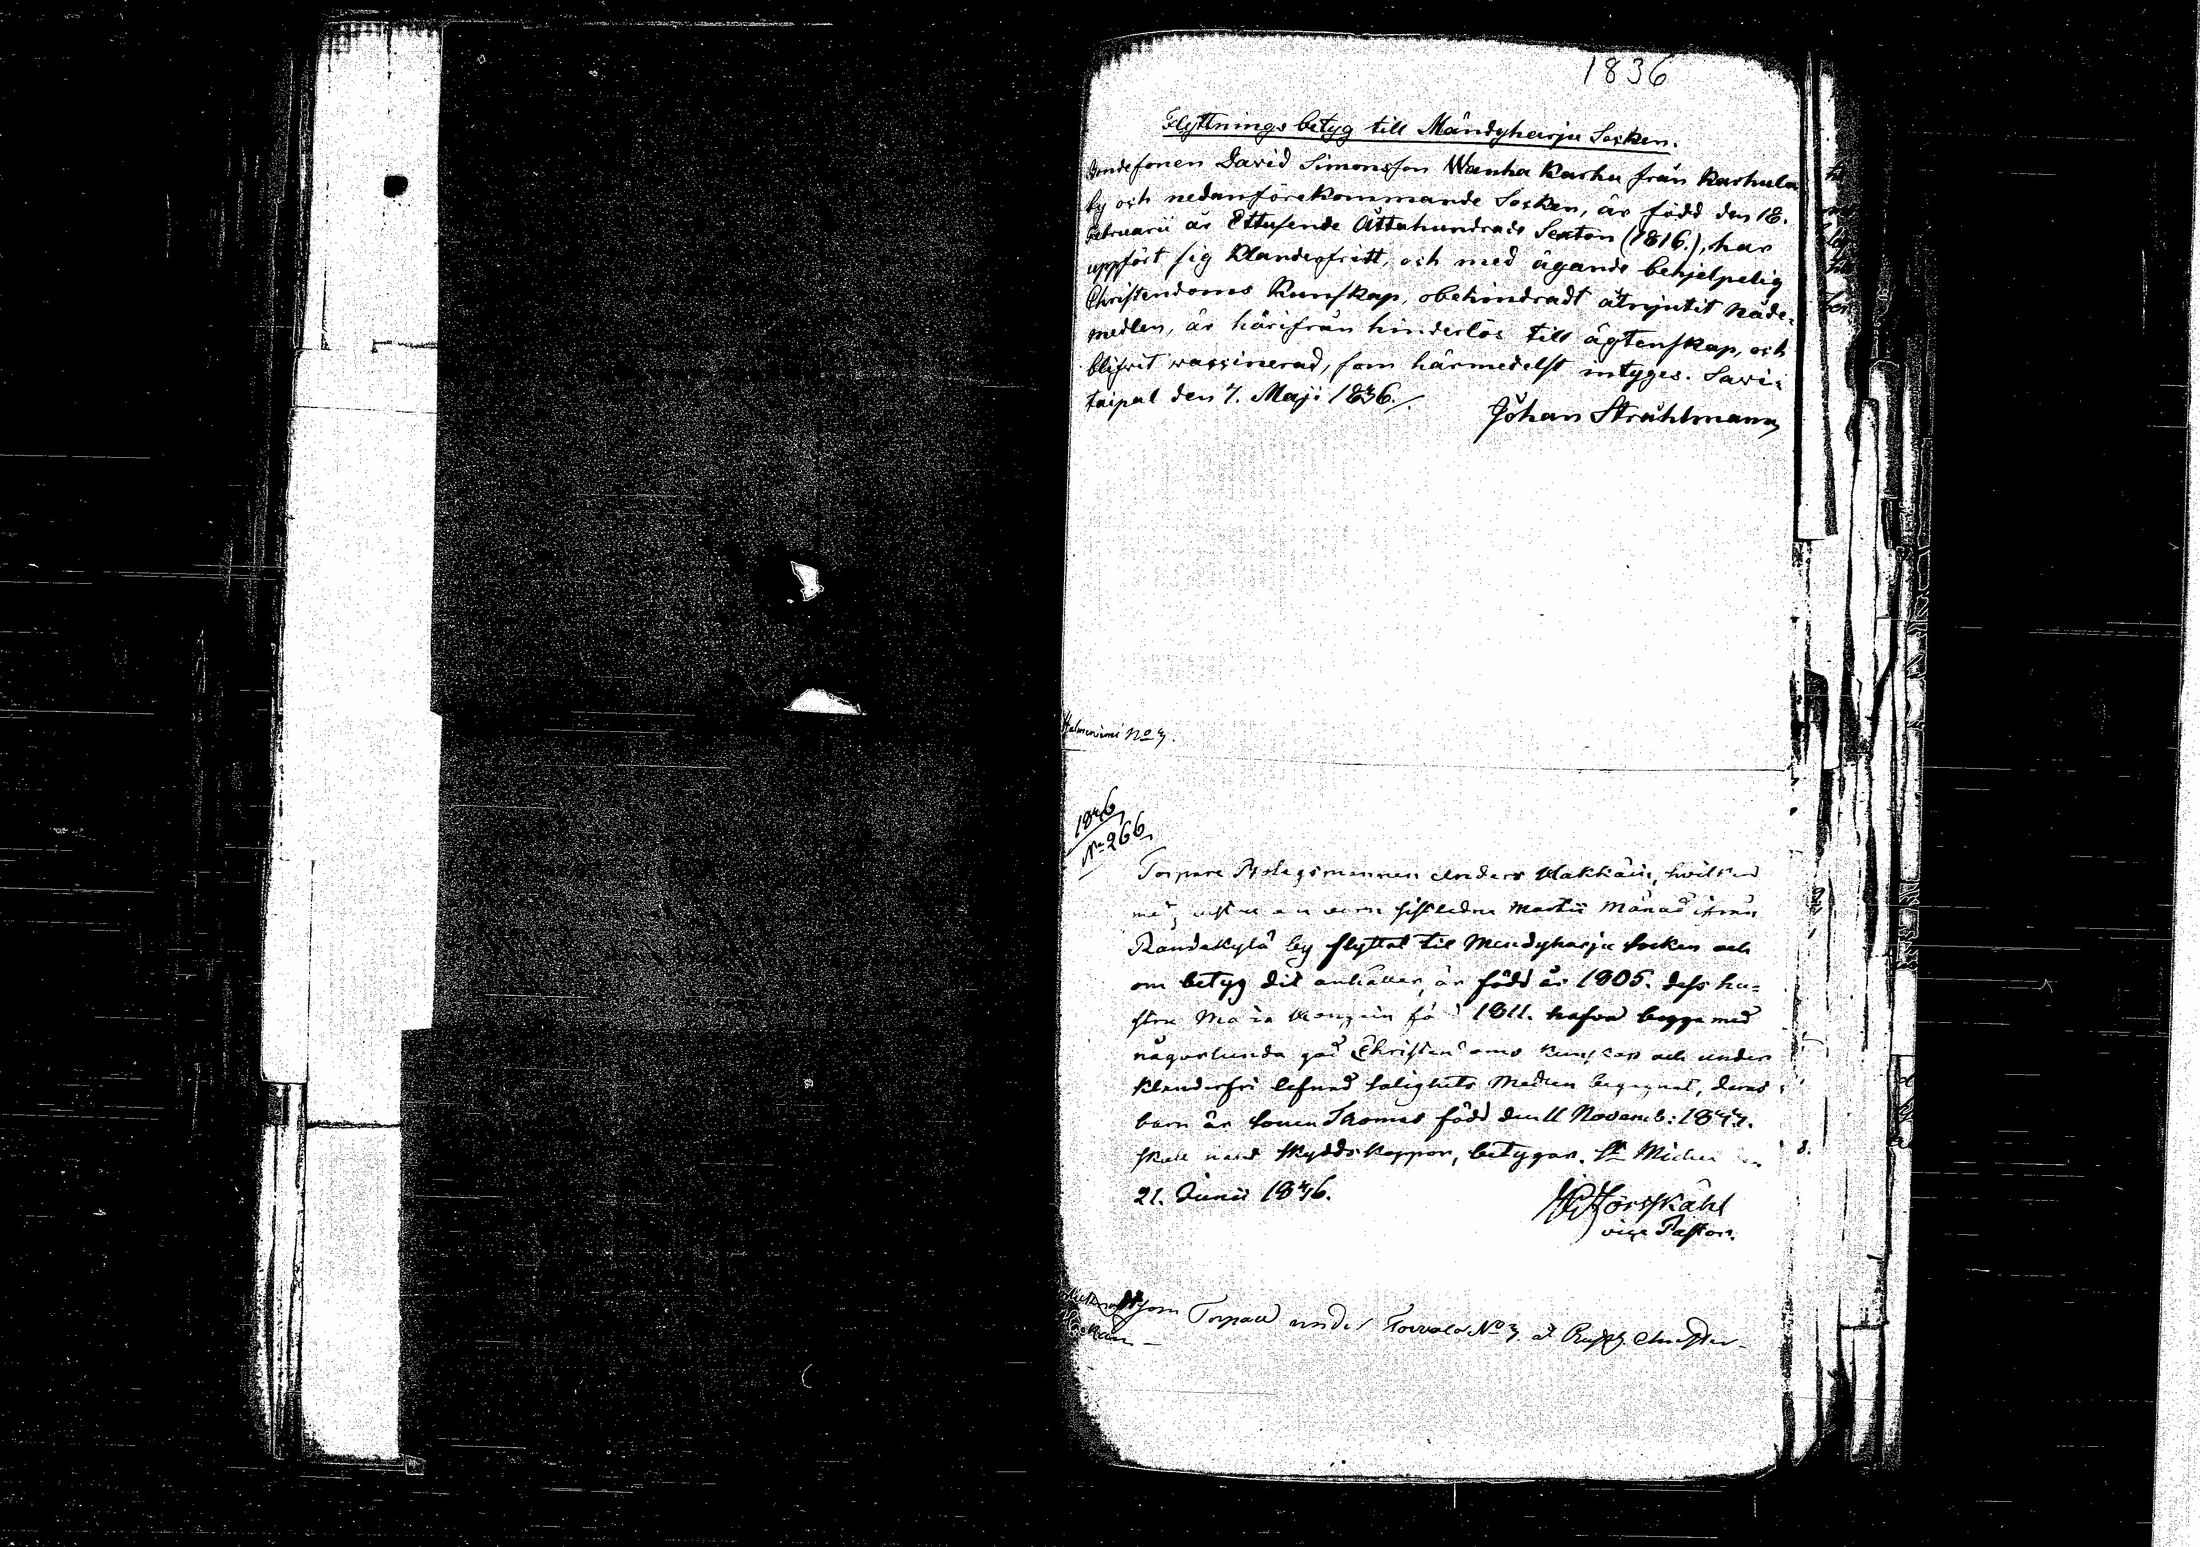 1836
Flyttnings betyg till Mändyharju Socken.
Bondesonen David Simonsson Wanha Karhu från Karhula
by och nedanförekommande Socken, är född den 18.
Februarii år Ettusende Åttahundrade Sexton (1816.), har
uppfört sig Klanderfritt, och med ägande behjelpelig
Christendoms Kunskap, obehindradt åtnjutit Nåde-
medlen, är härifrån hinderlös till ägtenskap, och
blifvit vaccinerad, som härmedelst intyges. Savi-
taipal den 7. Maji 1836.
Johan Stråhlmann
No 7.
1846
No 266
Torpare Bolagsmannen Anders hvilken
sistledne Martii Månad ifrån
Randakylä by flyttat til Mendyharju Socken och
om betyg dit anhåller, är född år 1805. dess hu-
stru 1811. hafva begge med
någorlunda god Christendoms Kunskap och under
Klanderfri lefnad salighets Medlen begagnat, deras
barn är Sonen Thomas född den 11 Novemb: 1844.
Skyddskoppor, betygar. St Michel den
21. Junii 1846.
Forsskåhl
vice Pastor.
som Torpare under Toivola No 7.